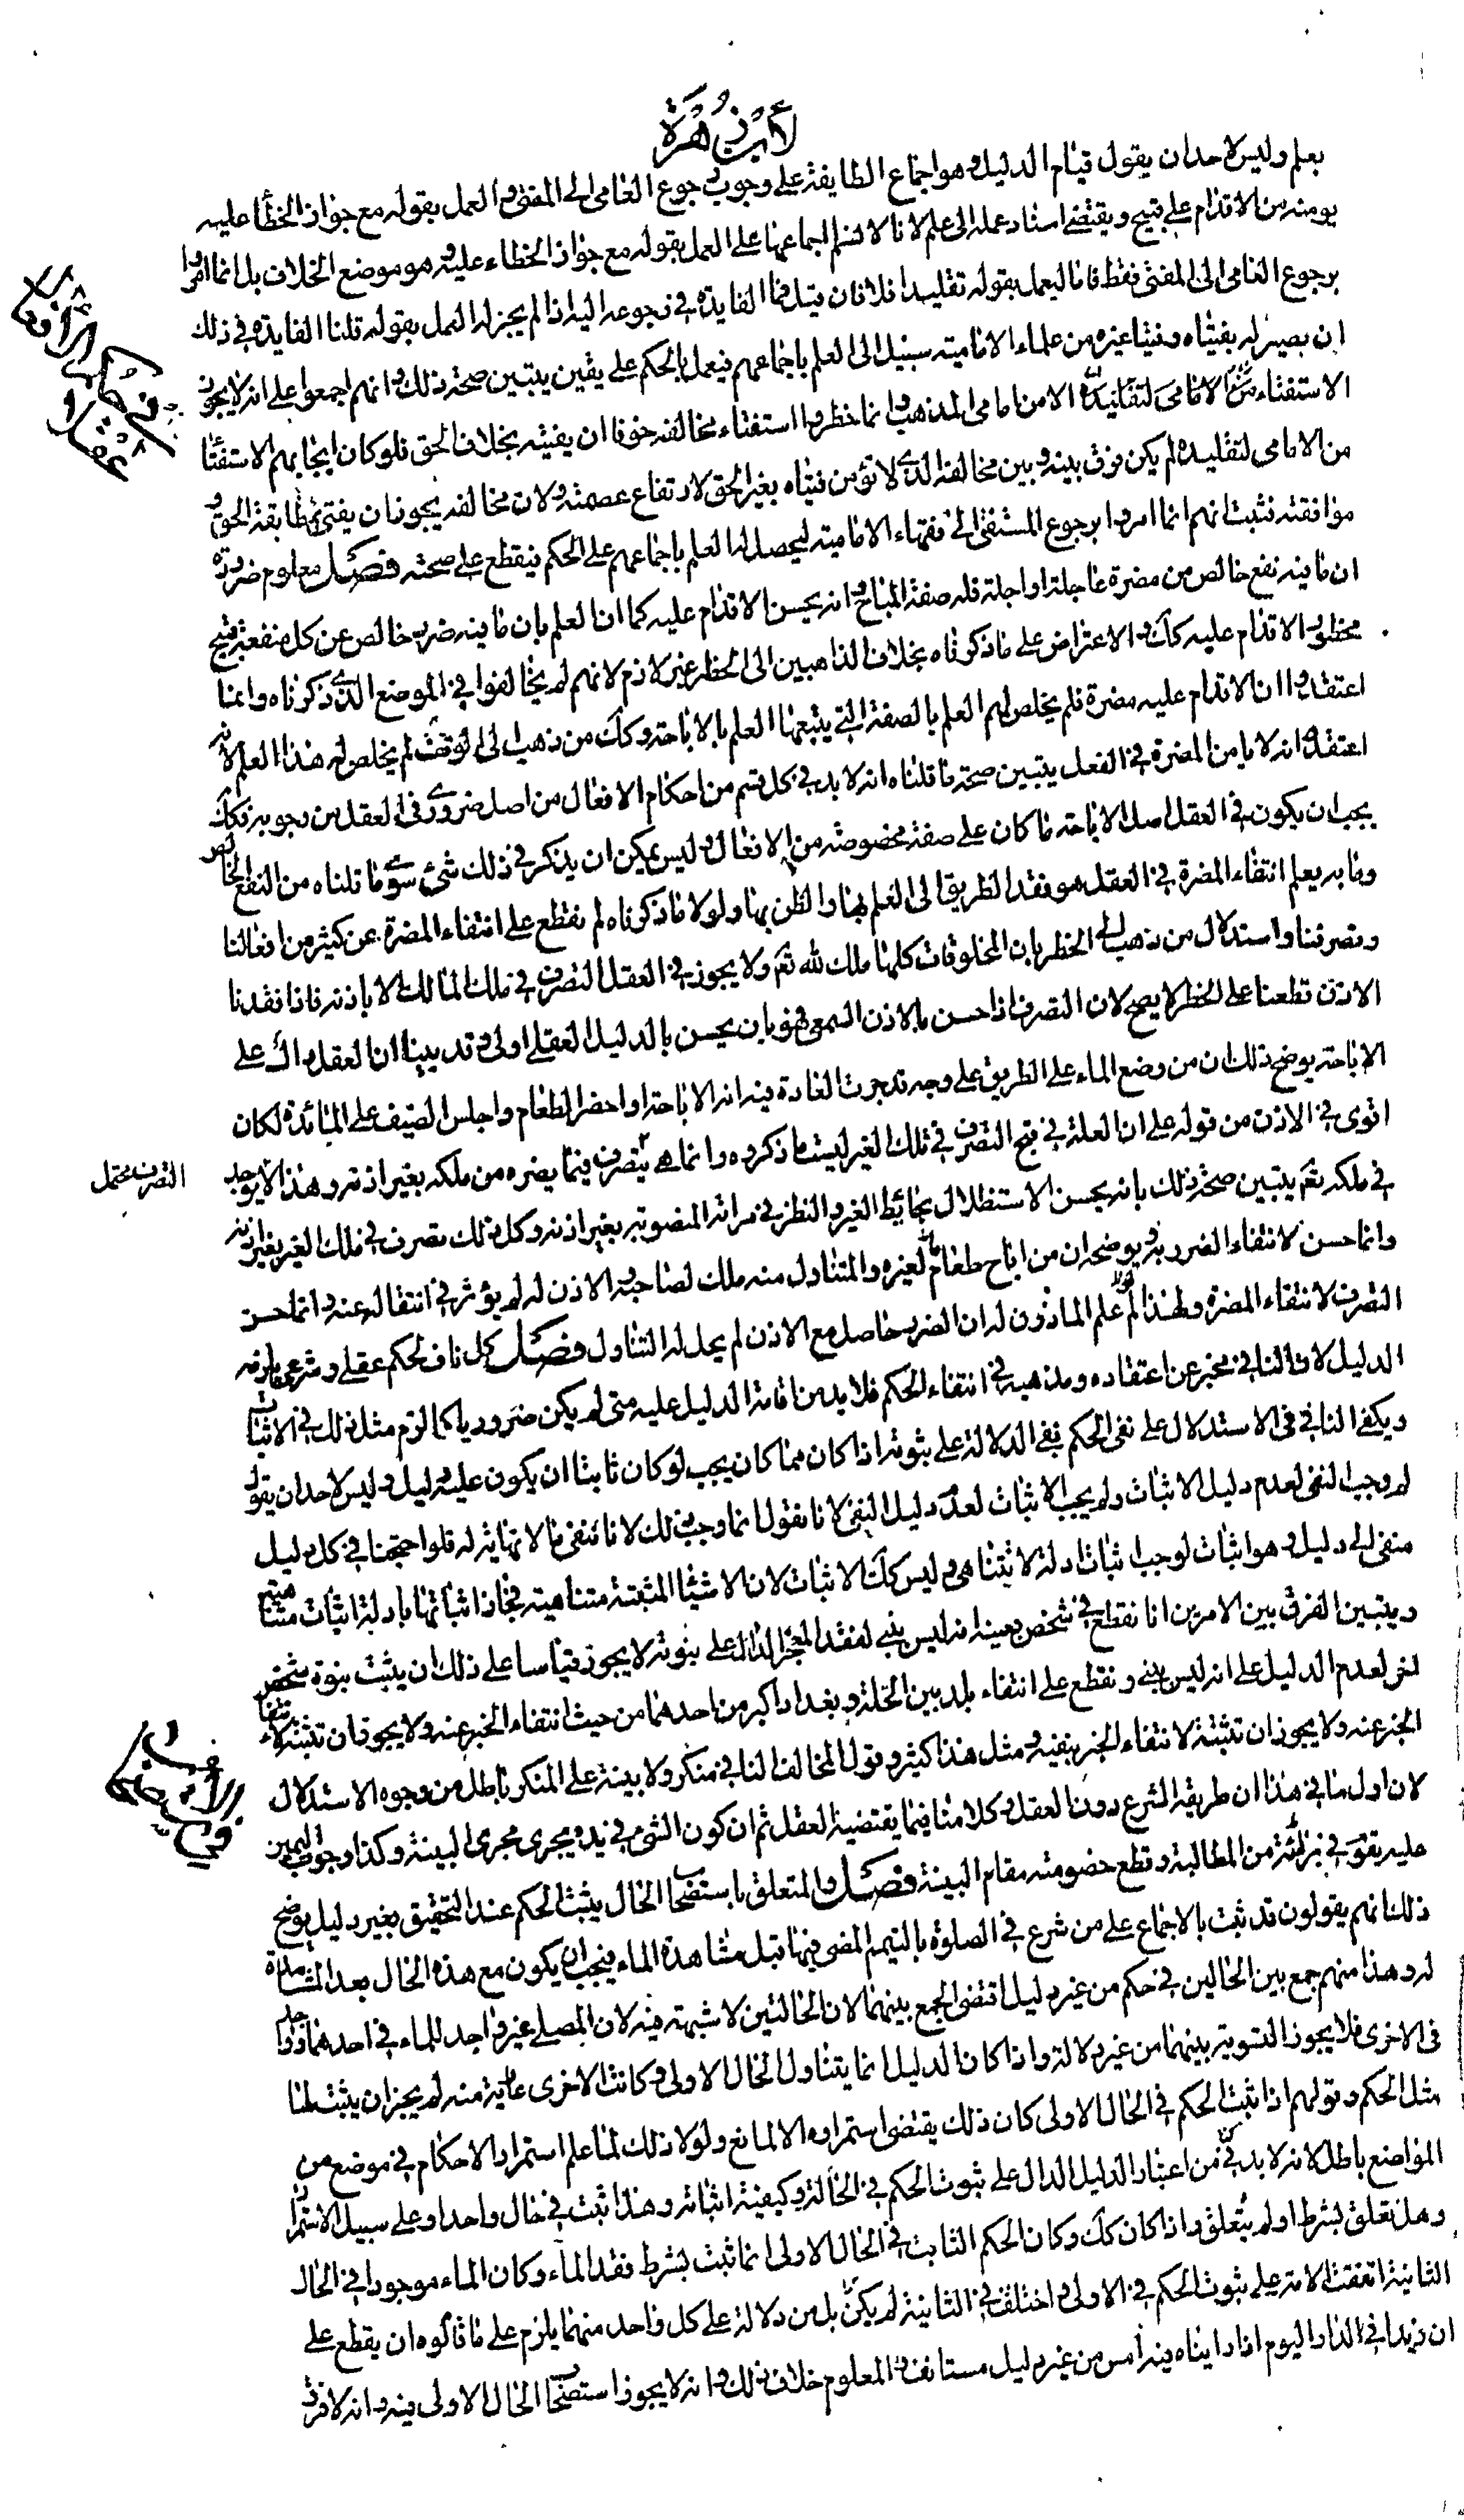 لابن زهرة
بعلم وليس لاحد ان يقول قيام الدليل وهو اجماع الطايفة على وجوب رجوع العامى الى المفتى والعمل بقوله مع جواز الخطأ عليه
يومنه من الاقدام على قبيح ويقتضى اسناد عمله الى علم لانا لا نسلم اجماعها على العمل بقوله مع جواز الخطاء عليه وهو موضع الخلاف بل انما امروا
برجوع العامى الى المفتى فقط فاما ليعمل بقوله تقليدا فلا فان قيل فما الفايدة فى رجوعه اليه اذا لم يجز له العمل بقوله قلنا الفايدة فى ذلك
ان يصير له بفتياه وفتيا غيره من علماء الامامية سبيل الى العلم باجماعهم فيعمل بالحكم على يقين يتبين صحة ذلك وانهم اجمعوا على انه لا يجوز
الاستفتاء من الامامى لتقليده الا من امامى المذهب وانما حظروا استفتاء مخالفه خوفا ان يفتيه بخلاف الحق فلو كان ايجابهم الاستفتا
من الامامى لتقليده لم يكن فرق بينه وبين مخالفه الذى لا نؤمن فتياه بغير الحق لارتفاع عصمته ولان مخالفه يجوز ان يفتى بمطابقة الحق و
موافقته فثبت انهم انما امروا برجوع المستفتى الى فقهاء الامامية ليحصل له العلم باجماعهم على الحكم فيقطع على صحته فصل معلوم ضرورة
ان ما فيه نفع خالص من مضرة عاجلة او اجلة فله صفة المباح وانه يحسن الاقدام عليه كما ان العلم بان ما فيه ضرر خالص عن كل منفعة قبيح
محظور الاقدام عليه كك والاعتراض على ما ذكرناه بخلاف الذاهبين الى الحظر غير لازم لانهم لم يخالفوا فى الموضع الذى ذكرناه وانما
اعتقدوا ان الاقدام عليه مضرة فلم يخلص لهم العلم بالصفة التى يتبعها العلم بالاباحة وكك من ذهب الى الوقف لم يخلص له هذا العلم لانه
اعتقد انه لا يامن المضرة فى الفعل يتبين صحة ما قلناه انه لا بد فى كل قسم من احكام الافعال من اصل ضرورى فى العقل من وجوبه فكك
يجب ان يكون فى العقل اصل الاباحة ما كان على صفة مخصوصة من الافعال وليس يمكن ان يذكر فى ذلك شئ سوى ما قلناه من النفع الخالص
وما به يعلم انتفاء المضرة فى العقل هو فقد الطريق الى العلم بها والظن بها ولولا ما ذكرناه لم نقطع على انتفاء المضرة عن كثير من افعالنا
وتصرفنا واستدلال من ذهب الى الحظر بان المخلوقات كلها ملك لله تعم ولا يجوز فى العقل التصرف فى ملك المالك الا باذنه فاذا فقدنا
الاذن قطعنا على الحظر لا يصح لان التصرف اذا حسن بالاذن السمعى فهو بان يحسن بالدليل العقلى اولى وقد بينا ان العقل دال على
الاباحة يوضح ذلك ان من وضع الماء على الطريق على وجه قد جرت العادة فيه انه الاباحة او احضر الطعام واجلس الضيف على المائدة لكان
اقوى فى الاذن من قوله على ان العلة فى قبح التصرف فى ملك الغير ليست ما ذكروه وانما هى يتصرف فيما يضره من ملكه بغير اذنه وهذا لا يوجد
التصرف محتمل
فى ملكه تعم يتبين صحة ذلك بانه يحسن الاستظلال بحائط الغير والنظر فى مراته المنصوبة بغير اذنه وكل ذلك تصرف فى ملك الغير بغير اذنه
وانما حسن لانتفاء الضرر به ويوضح ان من اباح طعامه لغيره والمتناول منه ملك لصاحبه والاذن له لم يؤثر فى انتقاله عنه وانما حسن
التصرف لانتفاء المضرة ولهذا لو علم الماذون له ان الضرر حاصل مع الاذن لم يحل له التناول فصل كل ناف لحكم عقلى وشرعى يلزمه
الدليل لان النافى مخبر عن اعتقاده ومذهبه فى انتفاء الحكم فلا بد من اقامة الدليل عليه متى لم يكن ضروريا كما لزم مثل ذلك فى الاثبات
ويكفى النافى فى الاستدلال على نفى الحكم نفى الدلالة على ثبوته اذا كان مما كان يجب لو كان ثابتا ان يكون عليه دليل وليس لاحد ان يقول
لم وجب النفى لعدم دليل الاثبات ولم يجب الاثبات لعدم دليل النفى لانا نقول انما وجب ذلك لانا ننفى ما لا نهاية له فلو احتجنا فى كل دليل
منفى الى دليل وهو اثبات لوجب اثبات ادلة لا تتناهى وليس كك الاثبات لان الاشيا المثبتة متناهية فجاز اثباتها بادلة اثبات متناهية
ويتبين الفرق بين الامرين انا نقطع فى شخص بعينه انه ليس بنبى لفقد المعجز الدال على نبوته لا يجوز قياسا على ذلك ان يثبت نبوة شخص
اخر لعدم الدليل على انه ليس بنبى ونقطع على انتفاء بلد بين الحلة وبغداد اكبر من احدهما من حيث انتفاء الخبر عنه ولا يجوز ان تثبته لانتفاء
الخبر عنه ولا يجوز ان تثبتة لانتفاء الخبر بنفيه ومثل هذا كثير وقول المخالف النافى منكر ولا بينة على المنكر باطل من وجوه الاستدلال
لان اول ما فى هذا ان طريقه الشرع دون العقل وكلامنا فيما يقتضيه العقل ثم ان كون الشئ فى يده يجرى مجرى البينة وكذا وجوب اليمين
عليه يقوم فى برائته من المطالبة وقطع خصومته مقام البينة فصل والمتعلق باستصحاب الحال يثبت الحكم عند التحقيق بغير دليل يوضح
ذلك انهم يقولون قد ثبت بالاجماع على من شرع فى الصلوة بالتيمم المضى فيها قبل مشاهدة الماء فيجب ان يكون مع هذه الحال بعد المشاهدة
له وهذا منهم جمع بين الحالين فى حكم من غير دليل اقتضى الجمع بينهما لان الحالتين لا شبهة فيه لان المصلى غير واجد للماء فى احدهما وواجد
فى الاخرى فلا يجوز التسوية بينهما من غير دلالة واذا كان الدليل انما يتناول الحال الاولى وكانت الاخرى عارية منه لم يجز ان يثبت لها
مثل الحكم وقولهم اذا ثبت الحكم فى الحال الاولى كان ذلك يقتضى استمراره الا لمانع ولولا ذلك لما علم استمرار الاحكام فى موضع من
المواضع باطل لانه لا بد فى من اعتبار الدليل الدال على ثبوت الحكم فى الحالة وكيفية اثباته وهذا ثبت فى حال واحد او على سبيل الاستمرار
وهل تعلق بشرط او لم يتعلق واذا كان كك وكان الحكم الثابت فى الحال الاولى انما ثبت بشرط فقد الماء وكان الماء موجودا فى الحال
الثانية اتفقت الامة على ثبوت الحكم فى الاولى واختلفت فى الثانية لم يكن بل من دلالة على كل واحد منهما يلزم على ما قالوه ان يقطع على
ان زيدا فى الدار اليوم اذا رايناه فيه امس من غير دليل مستانف والمعلوم خلاف ذلك وانه لا يجوز استصحاب الحال الاولى فيه وانه لا فرق